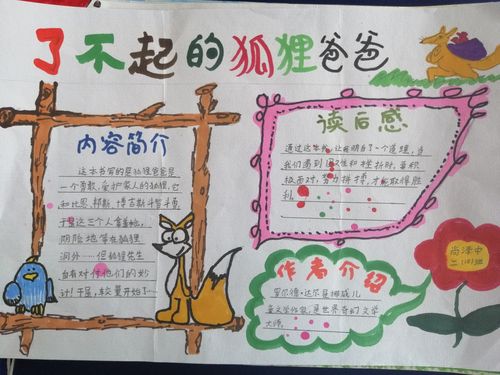 了不起的狐狸爸爸
内容简介
这本书写的是狐狸爸爸是
一个勇敢、爱护家人的狐狸,它
和比恩、邦斯、博吉斯斗智斗勇。
于是这三个人拿着枪,
阴险地等在狐狸
洞外……但狐狸先生
自有对付他们的妙
计!于是,较量开始了…
读后感
通过这本书,让我明白了一个道理,当
我们遇到困难和挫折时,要积
极面对,努力拼搏,才能取得胜
利。
作者介绍
罗尔德·达尔是挪威儿
童文学作家,是世界奇幻文学
大师。
尚泽中
二(10)班